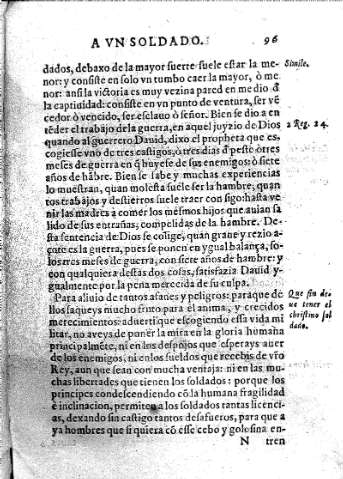 A VN SOLDADO. 96
dados, debaxo de la mayor suerte suele estar la me-
nor: y consiste en solo vn tumbo caer la mayor, ò me
nor: ansi la victoria es muy vezina pared en medio d̃
la captiuidad: consiste en vn punto de ventura, ser vẽ
cedor ò vencido, ser esclauo ò señor. Bien se dio a en
tẽder el trabajo de la guerra, en aquel juyzio de Dios
quando al guerrero Dauid, dixo el propheta que es,
cogiesse vno de tres castigos, ò tres dias d̃ peste ò tres
meses de guerra en q̃ huyesse de sus enemigos: ò siete
años de hãbre. Bien se sabe y muchas experiencias
lo muestran, quan molesta suele ser la hambre, quan
tos trabajos y destierros suele traer consigo: hasta ve
nir las madres à comer los mesmos hijos que auian sa
lido de sus entrañas, compelidas de la hambre. De-
sta sentencia de Dios se colige, quan graue y rezio a-
çote es la guerra, pues se ponen en ygual balança, so-
los tres meses de guerra, con siete años de hambre: y
con qualquiera destas dos cosas, satisfazia Dauid y-
gualmente por la pena merecida de su culpa.
Para aliuio de tantos afanes y peligros: para que de
llos saqueys mucho fruto para el anima, y crecidos
merecimientos: aduertid que escogiendo essa vida mi
litar, no aveys de poner la mira en la gloria humana
principalmẽte, ni en los despojos que esperays auer
de los enemigos, ni en los sueldos que recebis de vr̃o
Rey, aun que sean con mucha ventaja: ni en las mu-
chas libertades que tienen los soldados: porque los
principes condescendiendo cõ la humana fragilidad
è inclinacion, permiten a los soldados tantas licen-
cias, dexando sin castigo tantos desafueros, para que a
ya hombres que si quiera cõ esse cebo y golosina en-
N tren
Simile.
2 Reg. 24.
Que fin de-
ue tener el
christiano sol
dado.